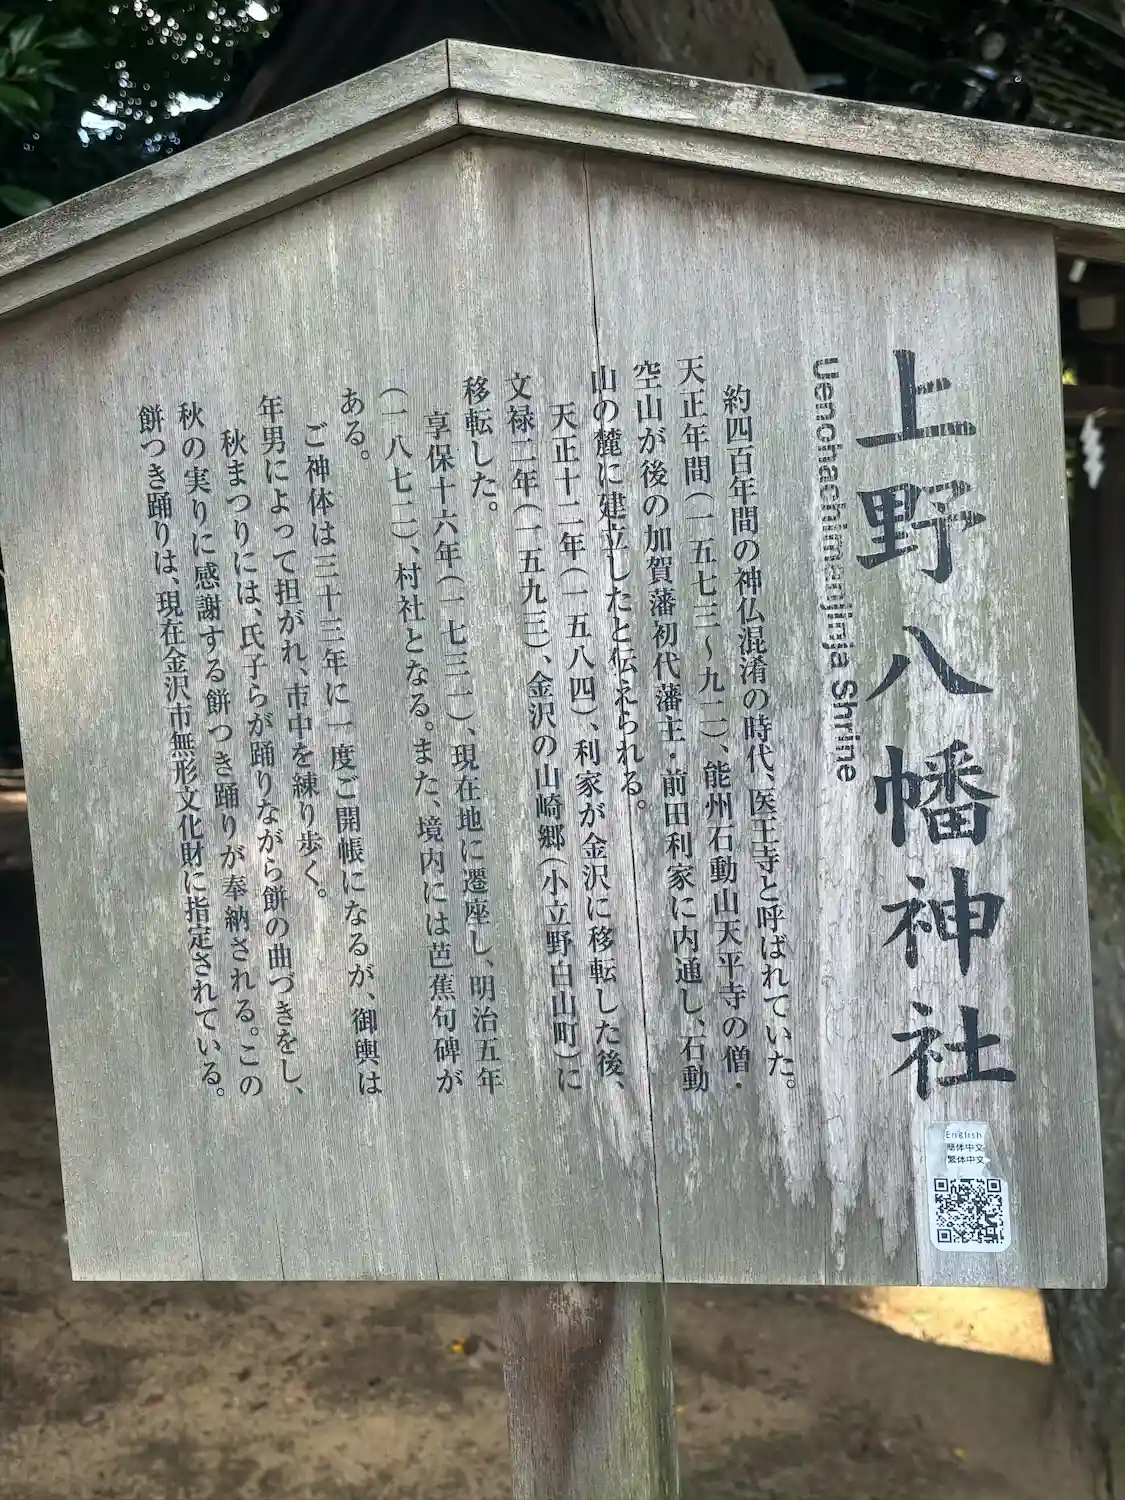 上野八幡神社
Uenohachimanjinja Shrine
約四百年間の神仏混淆の時代、医王寺と呼ばれていた。
天正年間(一五七三〜九二)、能州石動山天平寺の僧・
空山が後の加賀藩初代藩主・前田利家に内通し、石動
山の麓に建立したと伝えられる。
天正十二年(一五八四)、利家が金沢に移転した後、
文禄二年(一五九三)、金沢の山崎郷(小立野白山町)に
移転した。
享保十六年(一七三一)、現在地に遷座し、明治五年
(一八七二)、村社となる。また、境内には芭蕉句碑が
ある。
ご神体は三十三年に一度ご開帳になるが、御輿は
年男によって担がれ、市中を練り歩く。
秋まつりには、氏子らが踊りながら餅の曲づきをし、
秋の実りに感謝する餅つき踊りが奉納される。この
餅つき踊りは、現在金沢市無形文化財に指定されている。
English
簡体中文
繁体中文